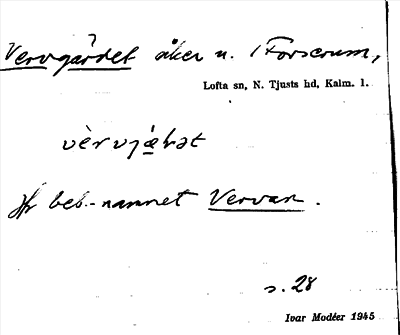 Vervgärdet åker u. Forserum,
Lofta sn, N. Tjusts hd, Kalm. l.
Jfr beb.-namnet Vervan.
s. 28
Ivar Modéer 1945